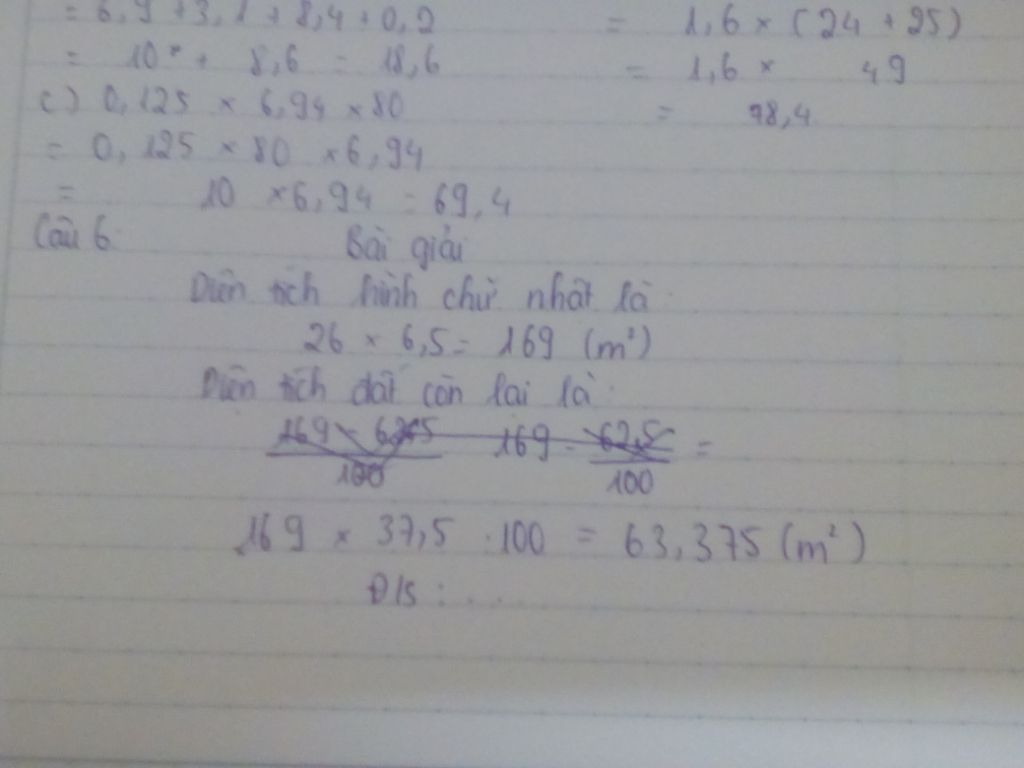 = 6,9 + 3,1 + 8,4 + 0,2
= 10 + 8,6 = 18,6
c) 0,125 × 6,94 × 80
= 0,125 × 80 × 6,94
= 10 × 6,94 = 69,4
= 1,6 × (24 + 25)
= 1,6 × 49
= 78,4
Câu 6:
Bài giải
Diện tích hình chữ nhật là:
26 × 6,5 = 169 (m²)
Diện tích đất còn lại là:
169 - 62,5 / 100 169 - 62,5 / 100 =
169 × 37,5 : 100 = 63,375 (m²)
Đ/S : ...